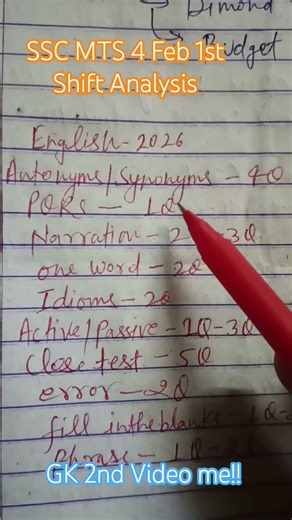 Dimond
Budget
SSC MTS 4 Feb 1st
Shift Analysis
English-2026
Antonyms/Synonyms - 4Q
PQRs - 1Q
Narration - 2 - 3Q
one word - 2Q
Idioms - 2Q
Active/Passive - 2Q - 3Q
Close test - 5Q
error - 2Q
fill in the blanks - 1Q
Phrase - 1Q
GK 2nd Video me!!